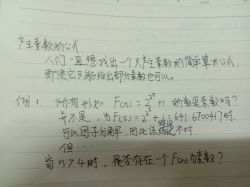 产生素数的公式
人们一直想找出一个只产生素数的简单算术公式,
即使它只能给出部分素数也可以。
例1 所有形如 F(n)=2^{2^n}+1 的都是素数吗?
并不是,当 F(5)=2^{2^5}+1=641·6700417时
可以因子分解,因此该 不对
但……
当 n>4时,是否存在一个F(n)为素数?